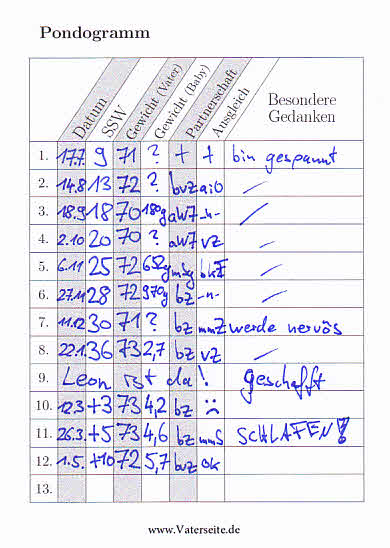 Pondogramm
Datum SSW Gewicht (Vater) Gewicht (Baby) Partnerschaft Ausgleich Besondere Gedanken
1. 17.7. 9 71 ? + + bin gespannt
2. 14.8 13 72 ? bvz aiO /
3. 18.9 18 70 180g aW7 -"- /
4. 2.10 20 70 ? aW7 vz /
5. 6.11 25 72 652g mSg bkF /
6. 27.11 28 72 970g bz -"- /
7. 11.12 30 71 ? bz mmZ werde nervös
8. 22.1. 36 73 2,7 bz vz /
9. Leon ist da! geschafft
10. 12.3 +3 73 4,2 bz ☹
11. 26.3. +5 73 4,6 bz mmS SCHLAFEN!
12. 1.5. +10 72 5,7 bvz ok
13.
www.Vaterseite.de